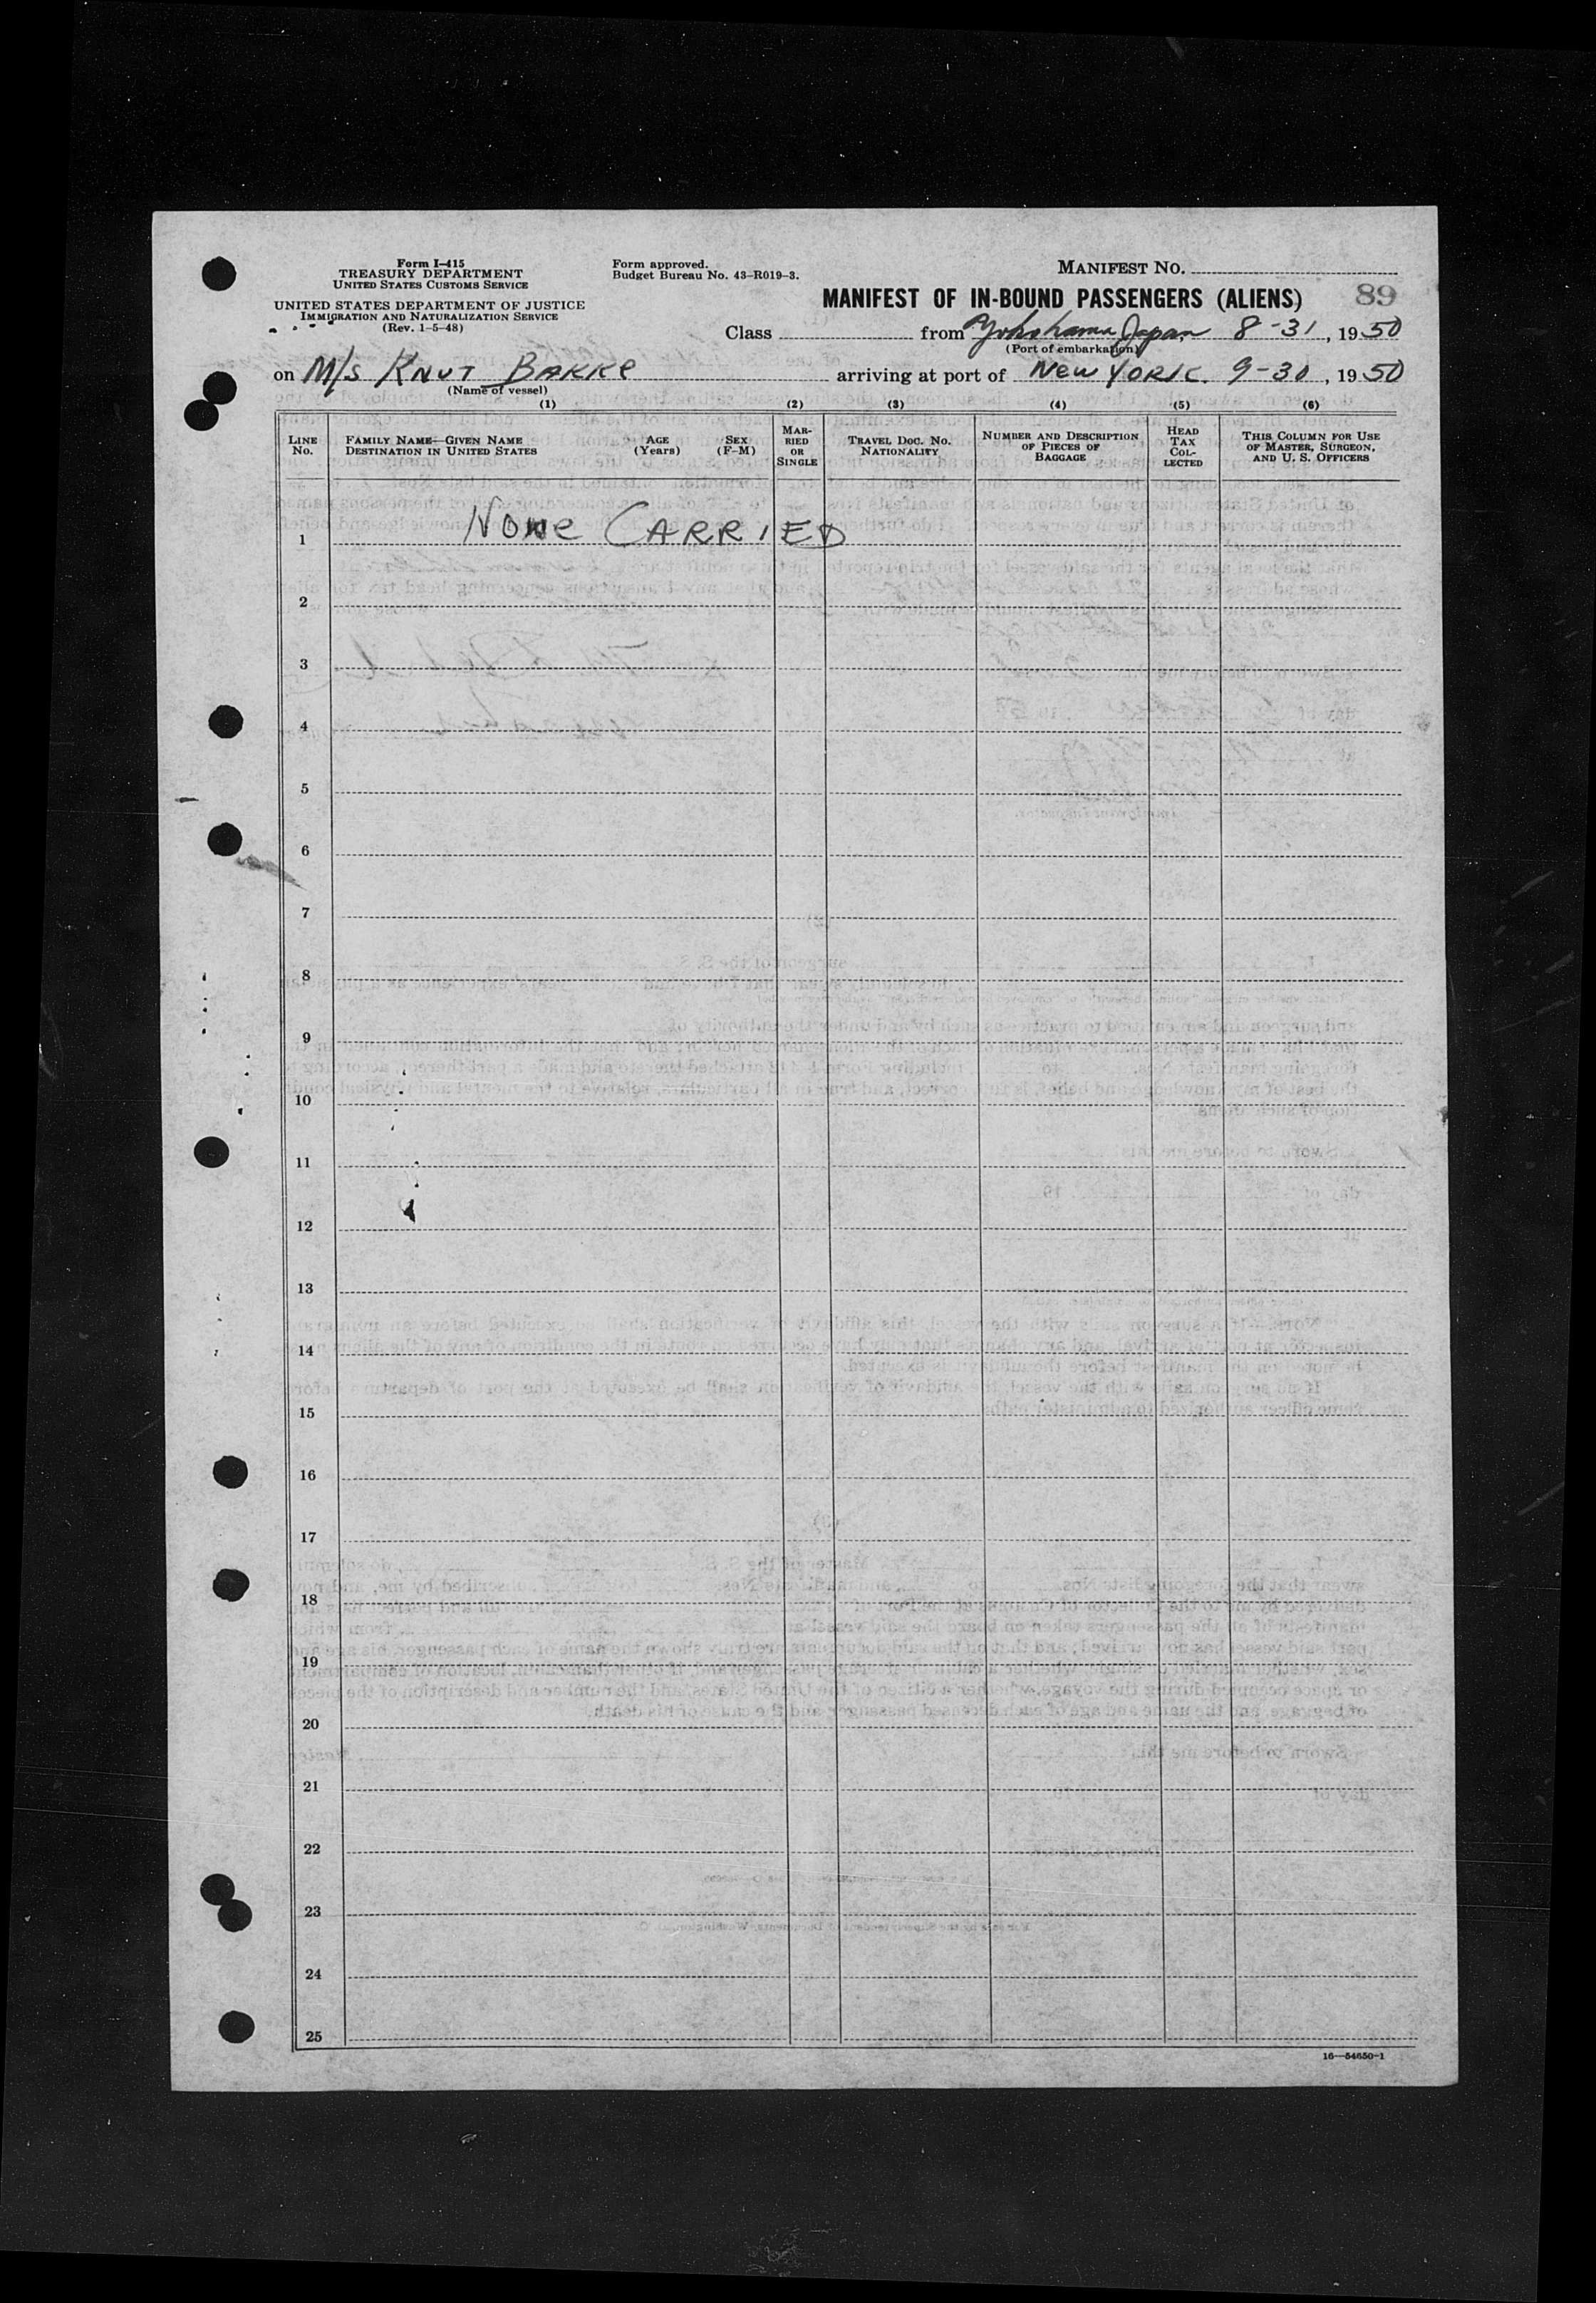 Form I-415
TREASURY DEPARTMENT
UNITED STATES CUSTOMS SERVICE
UNITED STATES DEPARTMENT OF JUSTICE
IMMIGRATION AND NATURALIZATION SERVICE
(Rev. 1-5-48)
Form approved.
Budget Bureau No. 43-R019-3.
MANIFEST NO.
MANIFEST OF IN-BOUND PASSENGERS (ALIENS) 89
Class from Yokohama Japan 8-31, 1950
(Port of embarkation)
on M/s KNUT BAKKe arriving at port of New YORK. 9-30, 1950
(Name of vessel)
(1) (2) (3) (4) (5) (6)
LINE No. FAMILY NAME—GIVEN NAME DESTINATION IN UNITED STATES AGE (Years) SEX (F-M) MARRIED OR SINGLE TRAVEL DOC. NO. NATIONALITY NUMBER AND DESCRIPTION OF PIECES OF BAGGAGE HEAD TAX COLLECTED THIS COLUMN FOR USE OF MASTER, SURGEON, AND U. S. OFFICERS
1 NONe CARRIED
2
3
4
5
6
7
8
9
10
11
12
13
14
15
16
17
18
19
20
21
22
23
24
25
16—54650-1